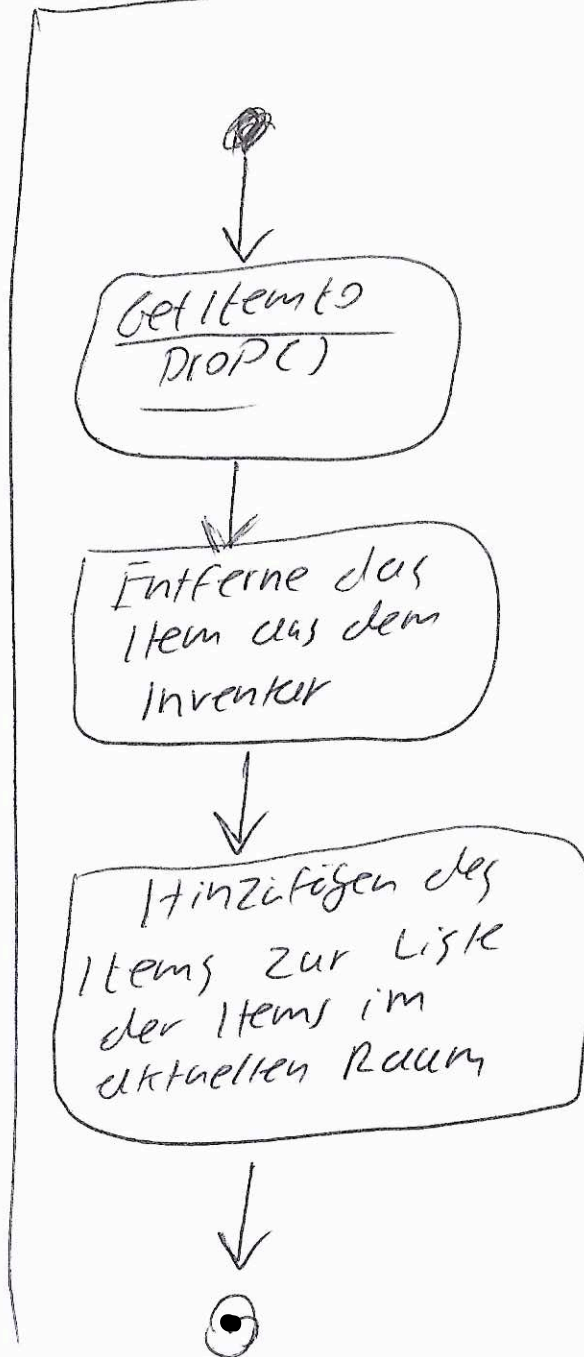 GetItemto
Drop()
Entferne das
Item aus dem
Inventar
Hinzufügen des
Items zur Liste
der Items im
aktuellen Raum